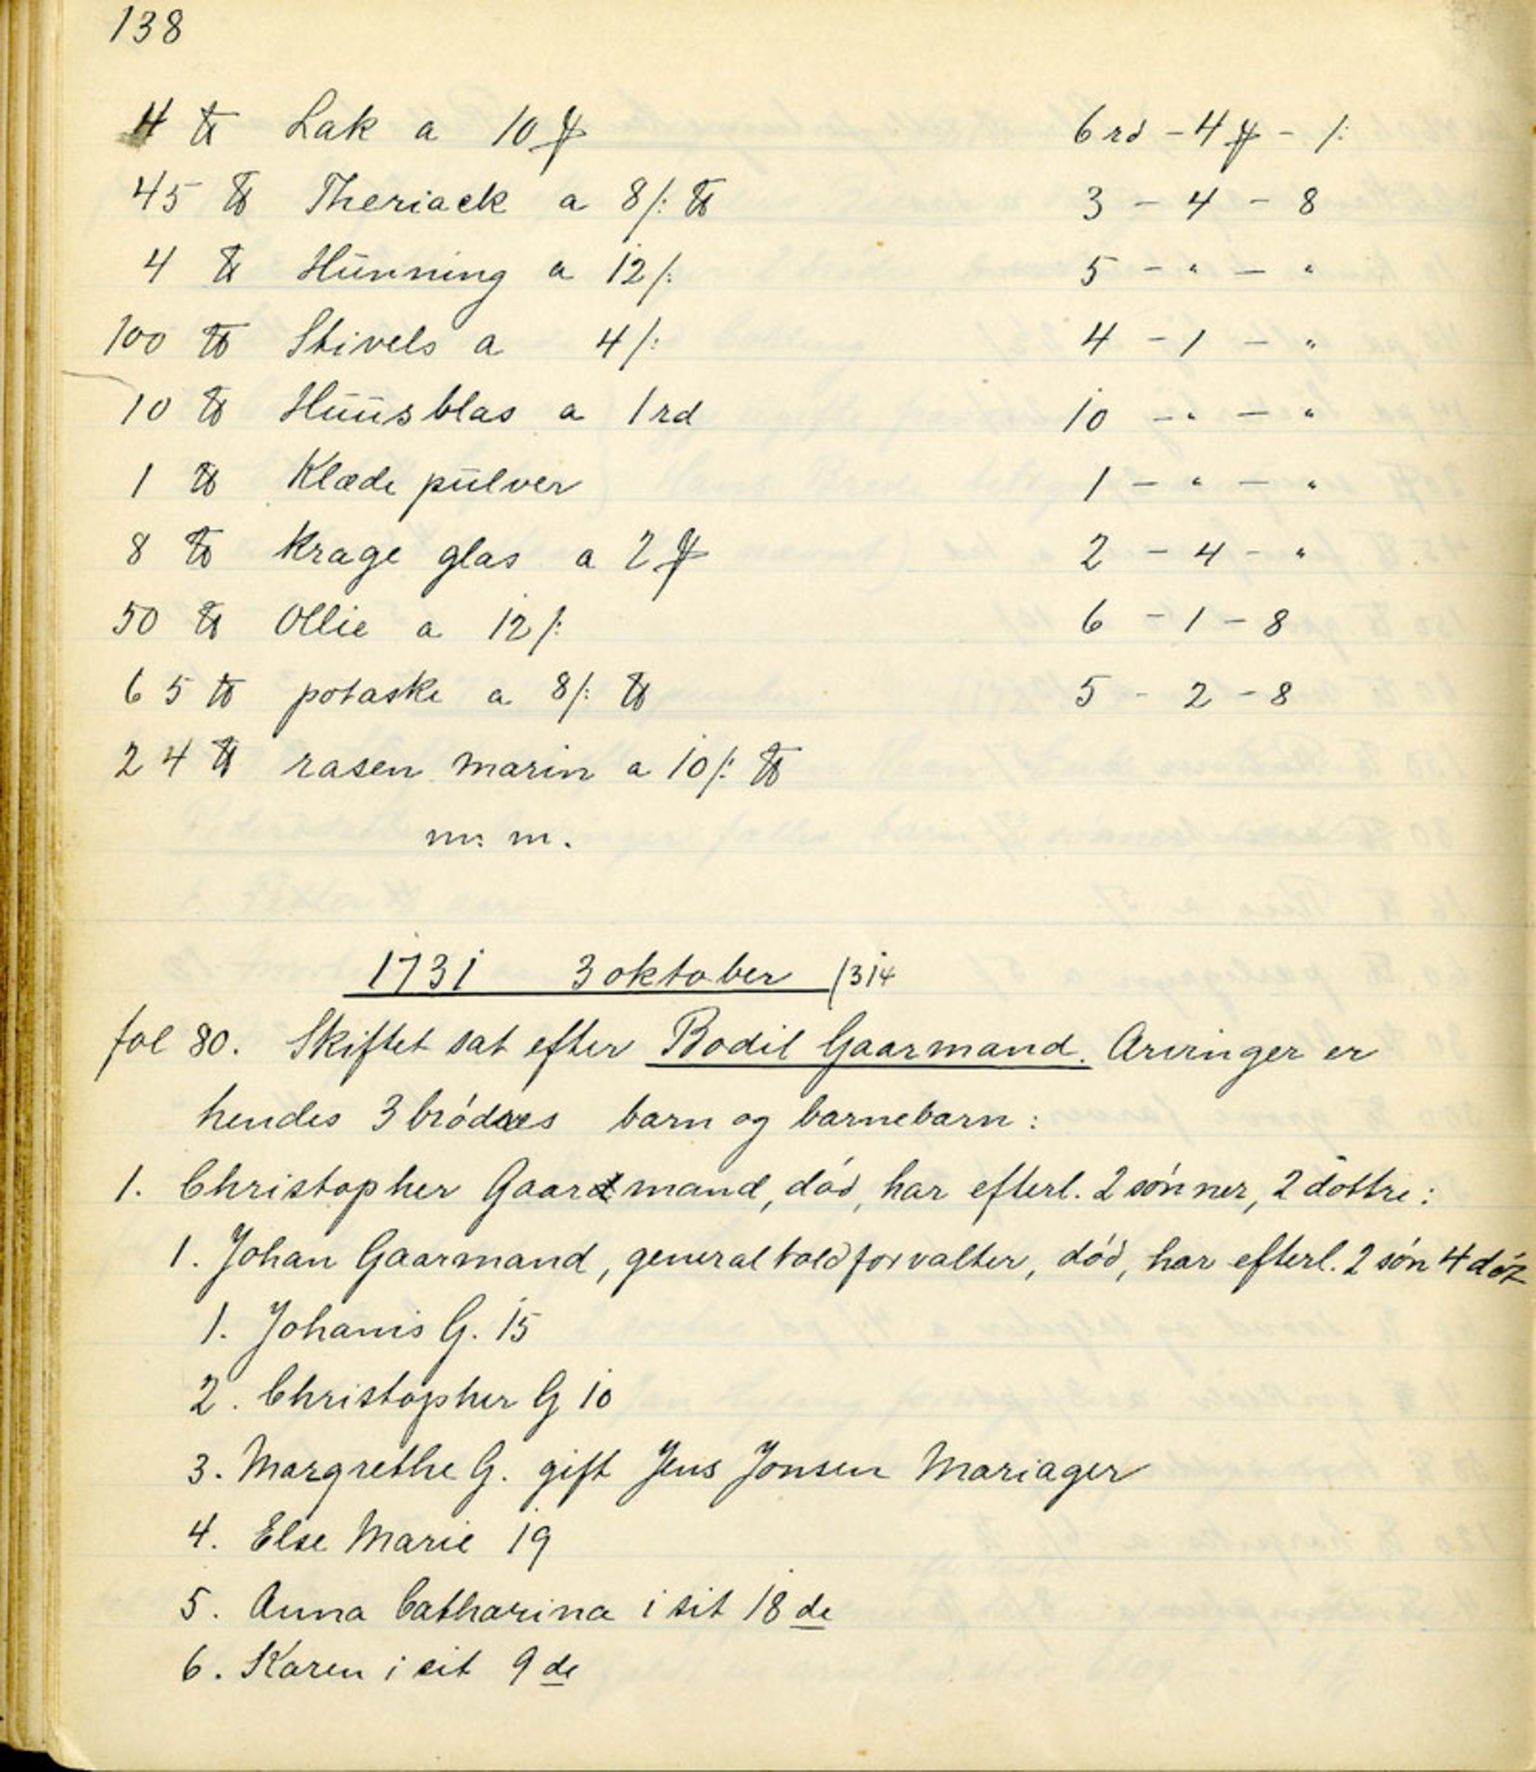 138
4 ℔ Lak a 10 ꝟ 6 rd - 4 ꝟ - /:
45 ℔ Theriack a 8/: ℔ 3 - 4 - 8
4 ℔ Hūnning a 12/: 5 - " - "
100 ℔ Stivels a 4/: 4 - 1 - "
10 ℔ Hūūsblas a 1 rd 10 - " - "
1 ℔ Klæde pūlver 1 - " - "
8 ℔ Krage glas a 2 ꝟ 2 - 4 - "
50 ℔ Ollie a 12/: 6 - 1 - 8
65 ℔ potaske a 8/: ℔ 5 - 2 - 8
24 ℔ rasen marin a 10/: ℔
m: m.
1731 3 oktober (314
fol 80. Skiftet sat efter Bodil Gaarmand. Arvinger er
hendes 3 bródres barn og barnebarn:
1. Christopher Gaarmand, dód, har efterl. 2 sónner, 2 dóttre:
1. Johan Gaarmand, generaltoldforvalter, dód, har efterl. 2 són 4 dót
1. Johanis G. 15
2. Christopher G 10
3. Margrethe G. gift Jens Jonsen Mariager
4. Else Marie 19
5. Anna Catharina i sit 18 de
6. Karen i sit 9 de